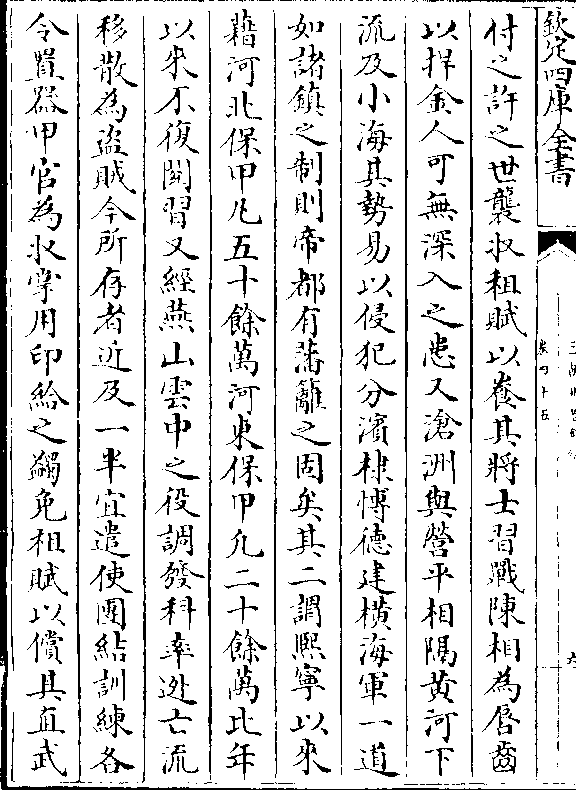 欽定四庫全書
卷四十五
付之許之世襲収租賦以養其將士習戰陳相為唇齒
以捍金人可無深入之患又滄洲與營平相隔黄河下
流及小海其勢易以侵犯分濱棣慱德建横海軍一道
如諸鎮之制則帝都有藩籬之固矣其二謂熙寧以來
藉河北保甲凡五十餘萬河東保甲凢二十餘萬比年
以來不復閲習又經燕山雲中之役調發科率逃亡流
移散為盗賊今所存者近及一半宜遣使團結訓練各
令置器甲官為収掌用印給之蠲免租賦以償其直武